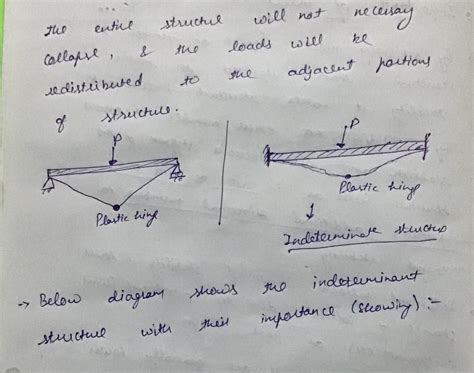 the entire structure will not necessay
collapse, & the loads will be
redistributed to the adjacent portions
of structure.
P
Plastic hinge
P
Plastic hinge
Indeterminate structures
-> Below diagram shows the indeterminant
structure with their importance (showing) :-